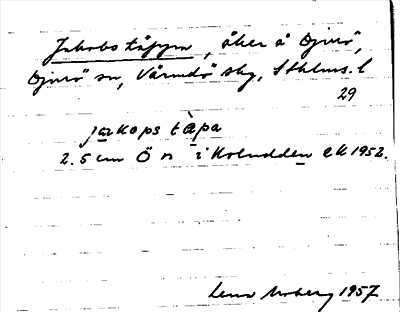 Jakobs täppa, åker å Djurö,
Djurö sn, Värmdö skg, Sthlms. l
29
jakops tàpa
2.5 cm Ö n i Koludden ek 1952.
Lena Moberg 1957